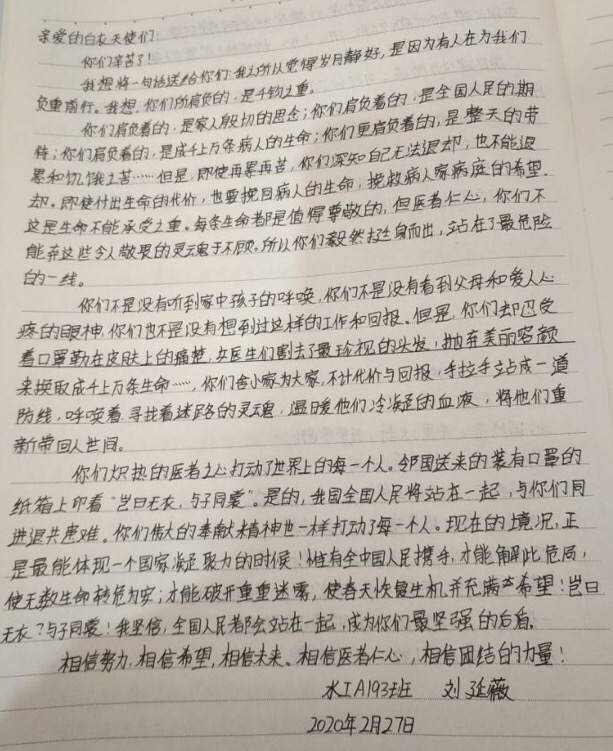 亲爱的白衣天使们:
你们辛苦了!
我想将一句话送给你们:我之所以觉得岁月静好,是因为有人在为我们
负重前行。我想,你们所肩负的,是千钧之重。
你们肩负着的,是家人殷切的思念;你们肩负着的,是全国人民的期
待;你们肩负着的,是成千上万条病人的生命;你们更肩负着的,是整天的劳
累和饥饿之苦……但是,即使再累再苦,你们深知自己无法退却,也不能退
却。即使付出生命的代价,也要挽回病人的生命,挽救病人家病庭的希望.
这是生命不能承受之重。每条生命都是值得尊敬的,但医者仁心,你们不
能弃这些令人敬畏的灵魂于不顾。所以你们毅然挺身而出,站在了最危险
的一线。
你们不是没有听到家中孩子的呼唤,你们不是没有看到父母和爱人心
疼的眼神,你们也不是没有想到过这样的工作和回报。但是,你们却忍受
着口罩勒在皮肤上的痛楚,女医生们割去了最珍视的头发,抛弃美丽容颜
来换取成千上万条生命……,你们舍小家为大家,不计代价与回报,手拉手立成一道
防线,呼唤着,寻找着迷路的灵魂,温暖他们冷凝的血液,将他们重
新带回人世间。
你们炽热的医者之心打动了世界上的每一个人。邻国送来的装有口罩的
纸箱上印着“岂曰无衣,与子同裳”。是的,我国全国人民将站在一起,与你们同
进退共患难。你们伟大的奉献精神也一样打动了每一个人。现在的境况,正
是最能体现一个国家凝聚力的时候!惟有全中国人民携手,才能解此危局,
使无数生命转危为安;才能破开重重迷雾,使春天恢复生机并充满希望!岂曰
无衣?与子同裳!我坚信,全国人民都会站在一起,成为你们最坚强的后盾。
相信努力,相信希望,相信未来。相信医者仁心,相信团结的力量!
水工A193班 刘延薇
2020年2月27日